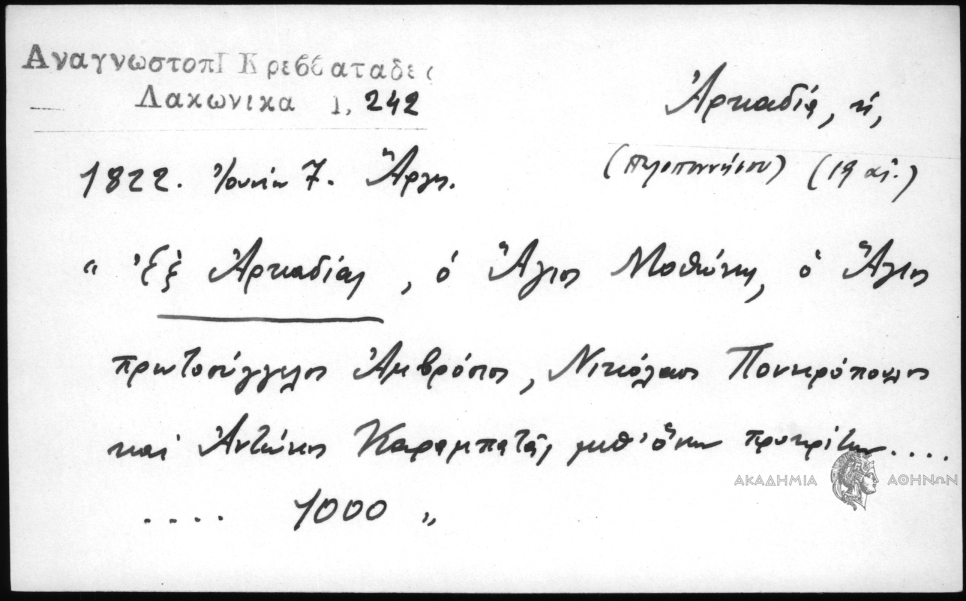 Αναγνωστοπ Κρεββαταδες
Λακωνικα 1, 242
Ἀρκαδία, ἡ,
(Πελοποννήσου) (19 αἰ.)
1822. Ἰουνίου 7. Ἄργος.
" Ἐξ Ἀρκαδίας, ὁ Ἅγιος Μοθώνης, ὁ Ἅγιος
πρωτοσύγγελος Ἀμβρόσιος, Νικόλαος Πονηρόπουλος
καὶ Ἀντώνης Καραμπατᾶς μεθ' ὅλων προκρίτων....
.... 1000 "
ΑΚΑΔΗΜΙΑ ΑΘΗΝΩΝ